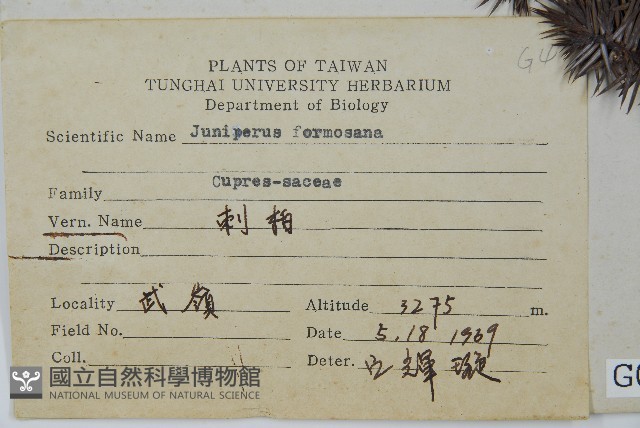 G4
PLANTS OF TAIWAN
TUNGHAI UNIVERSITY HERBARIUM
Department of Biology
Scientific Name Juniperus formosana
Family Cupres-saceae
Vern. Name 刺柏
Description
Locality 武嶺 Altitude 3275 m.
Field No. Date 5.18 1969
Coll. Deter.
國立自然科學博物館
NATIONAL MUSEUM OF NATURAL SCIENCE